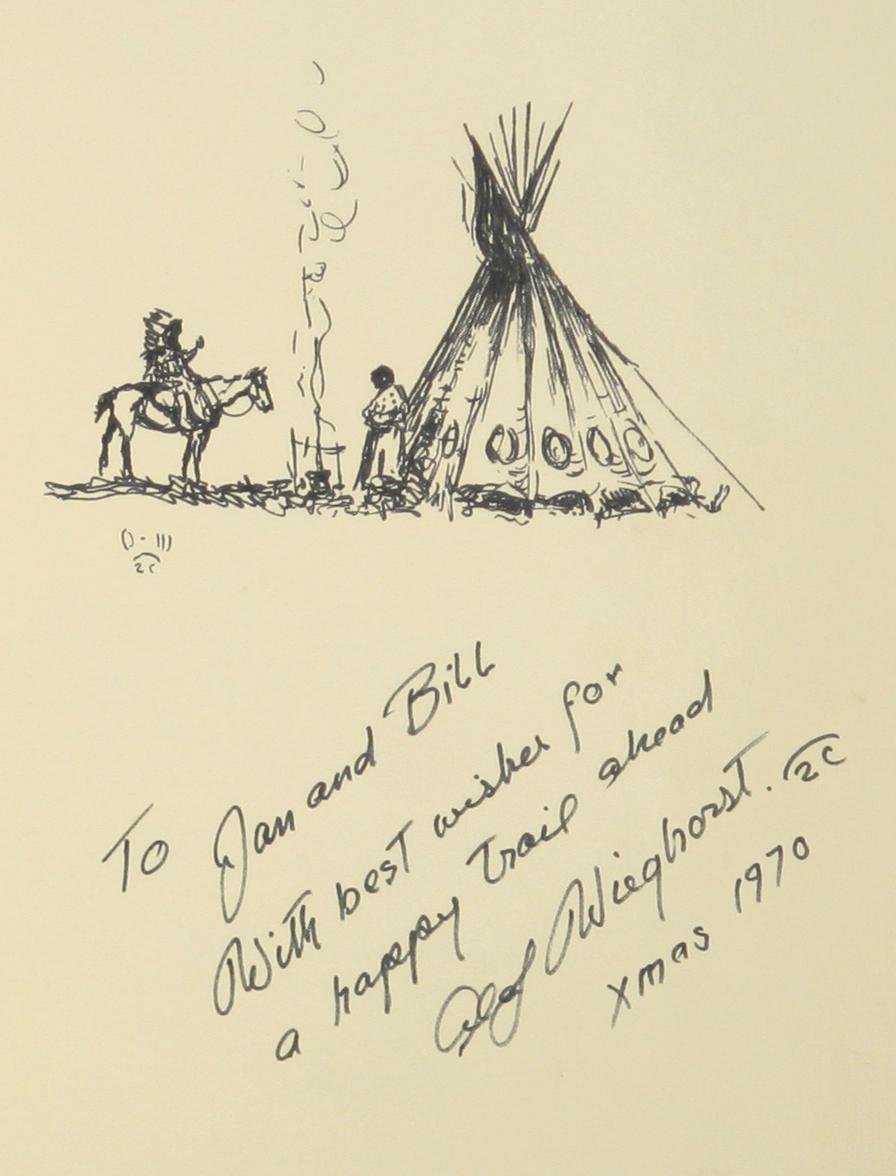 To Jan and Bill
With best wishes for
a happy Trail ahead
Olaf Wieghorst. 2C
Xmas 1970
2C